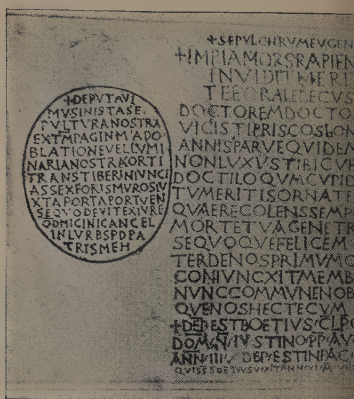 +DEPVTAVI
MVSINISTASE.
PVLTVRANOSTRA
EXTMPAGINMADO
BLATIONEVELLVMI
NARIANOSTRAORTI
TRANSTIBERINIVNCI
ASSEXFORISMVROSIV
XTAPORTAPORTVEN
SEQVODEVITEXIVRE
QDMICINICANCEL
INLVRBSPDPA
TRISMEH
+SEPVLCHRVMEVGEN
+IMPIAMORSRAPIEN
INVIDITMERI
TEEORALEECVS
DOCTOREMDOCTO
VICISTIPRISCOSLON
ANNISPARVEQVIDEM
NONLVXVSTIBICV
DOCTILOQVMCVTIO
TVMERITISORNATE
QVAERECOLENSSEMP
MORTETVAGENETR
SEQVOQVEFELICEM
TERDENOSPRIMVMQ
CONIVNCXITMEMB
NVNCCOMMVNENOB
QVENOSHECTECVM
+DEPESTBOETIVS·CLPO
DOMN·IVSTINOPPAVG
ANNIIII DEPESTINPAC